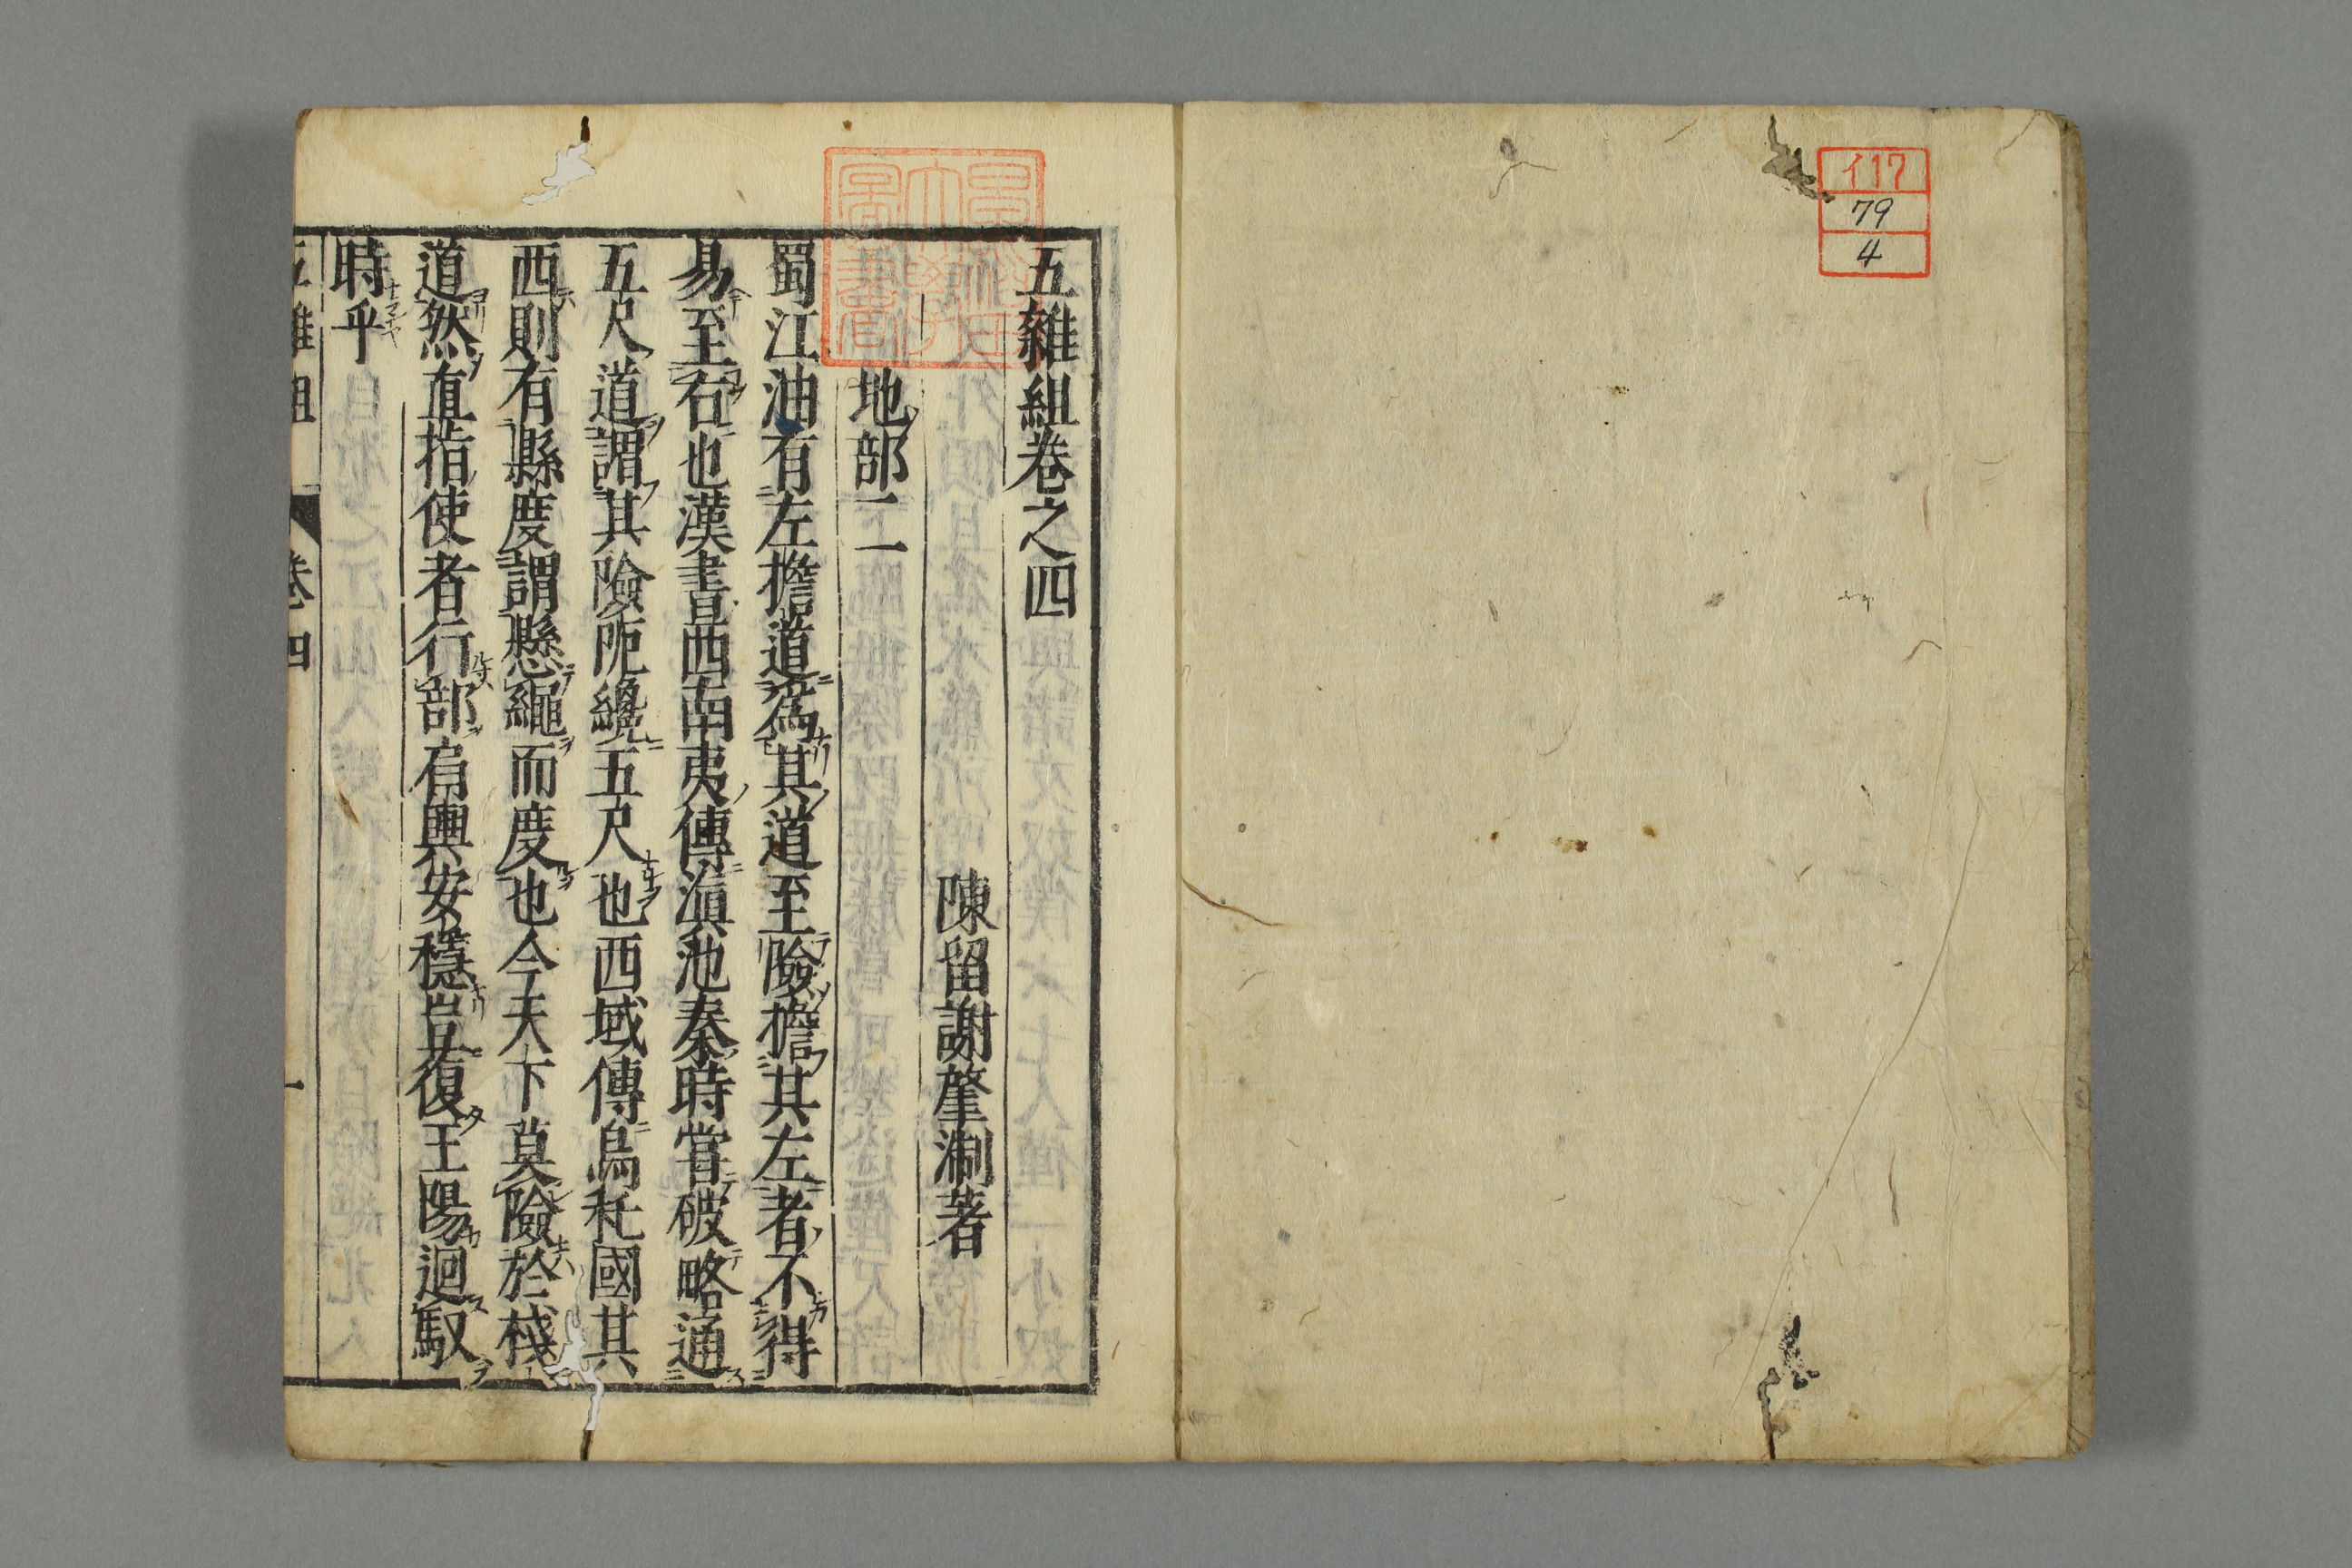 イ17
79
4
五雜組卷之四
陳留謝肇淛著
地部二
蜀江油有左擔道爲其道至險擔其左者不得
易至右也漢書西南夷傳滇池秦時嘗破略通
五尺道謂其險阨纔五尺也西域傳烏秅國其
西則有縣度謂懸繩而度也今天下莫險於棧
道然直指使者行部肩輿安穩豈復王陽迴馭
時乎
五雜組
卷四
一